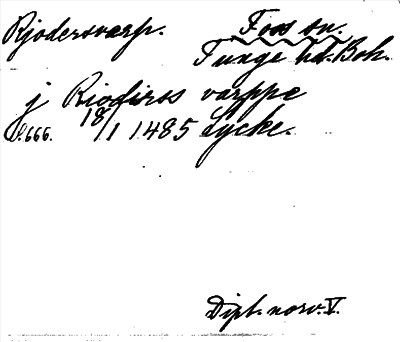 Rjodersvarp. Foss sn.
Tunge hd. Boh.
j Riodirss varppe
S. 666. 18/1 1485 Lycke.
Dipl. norv. V.